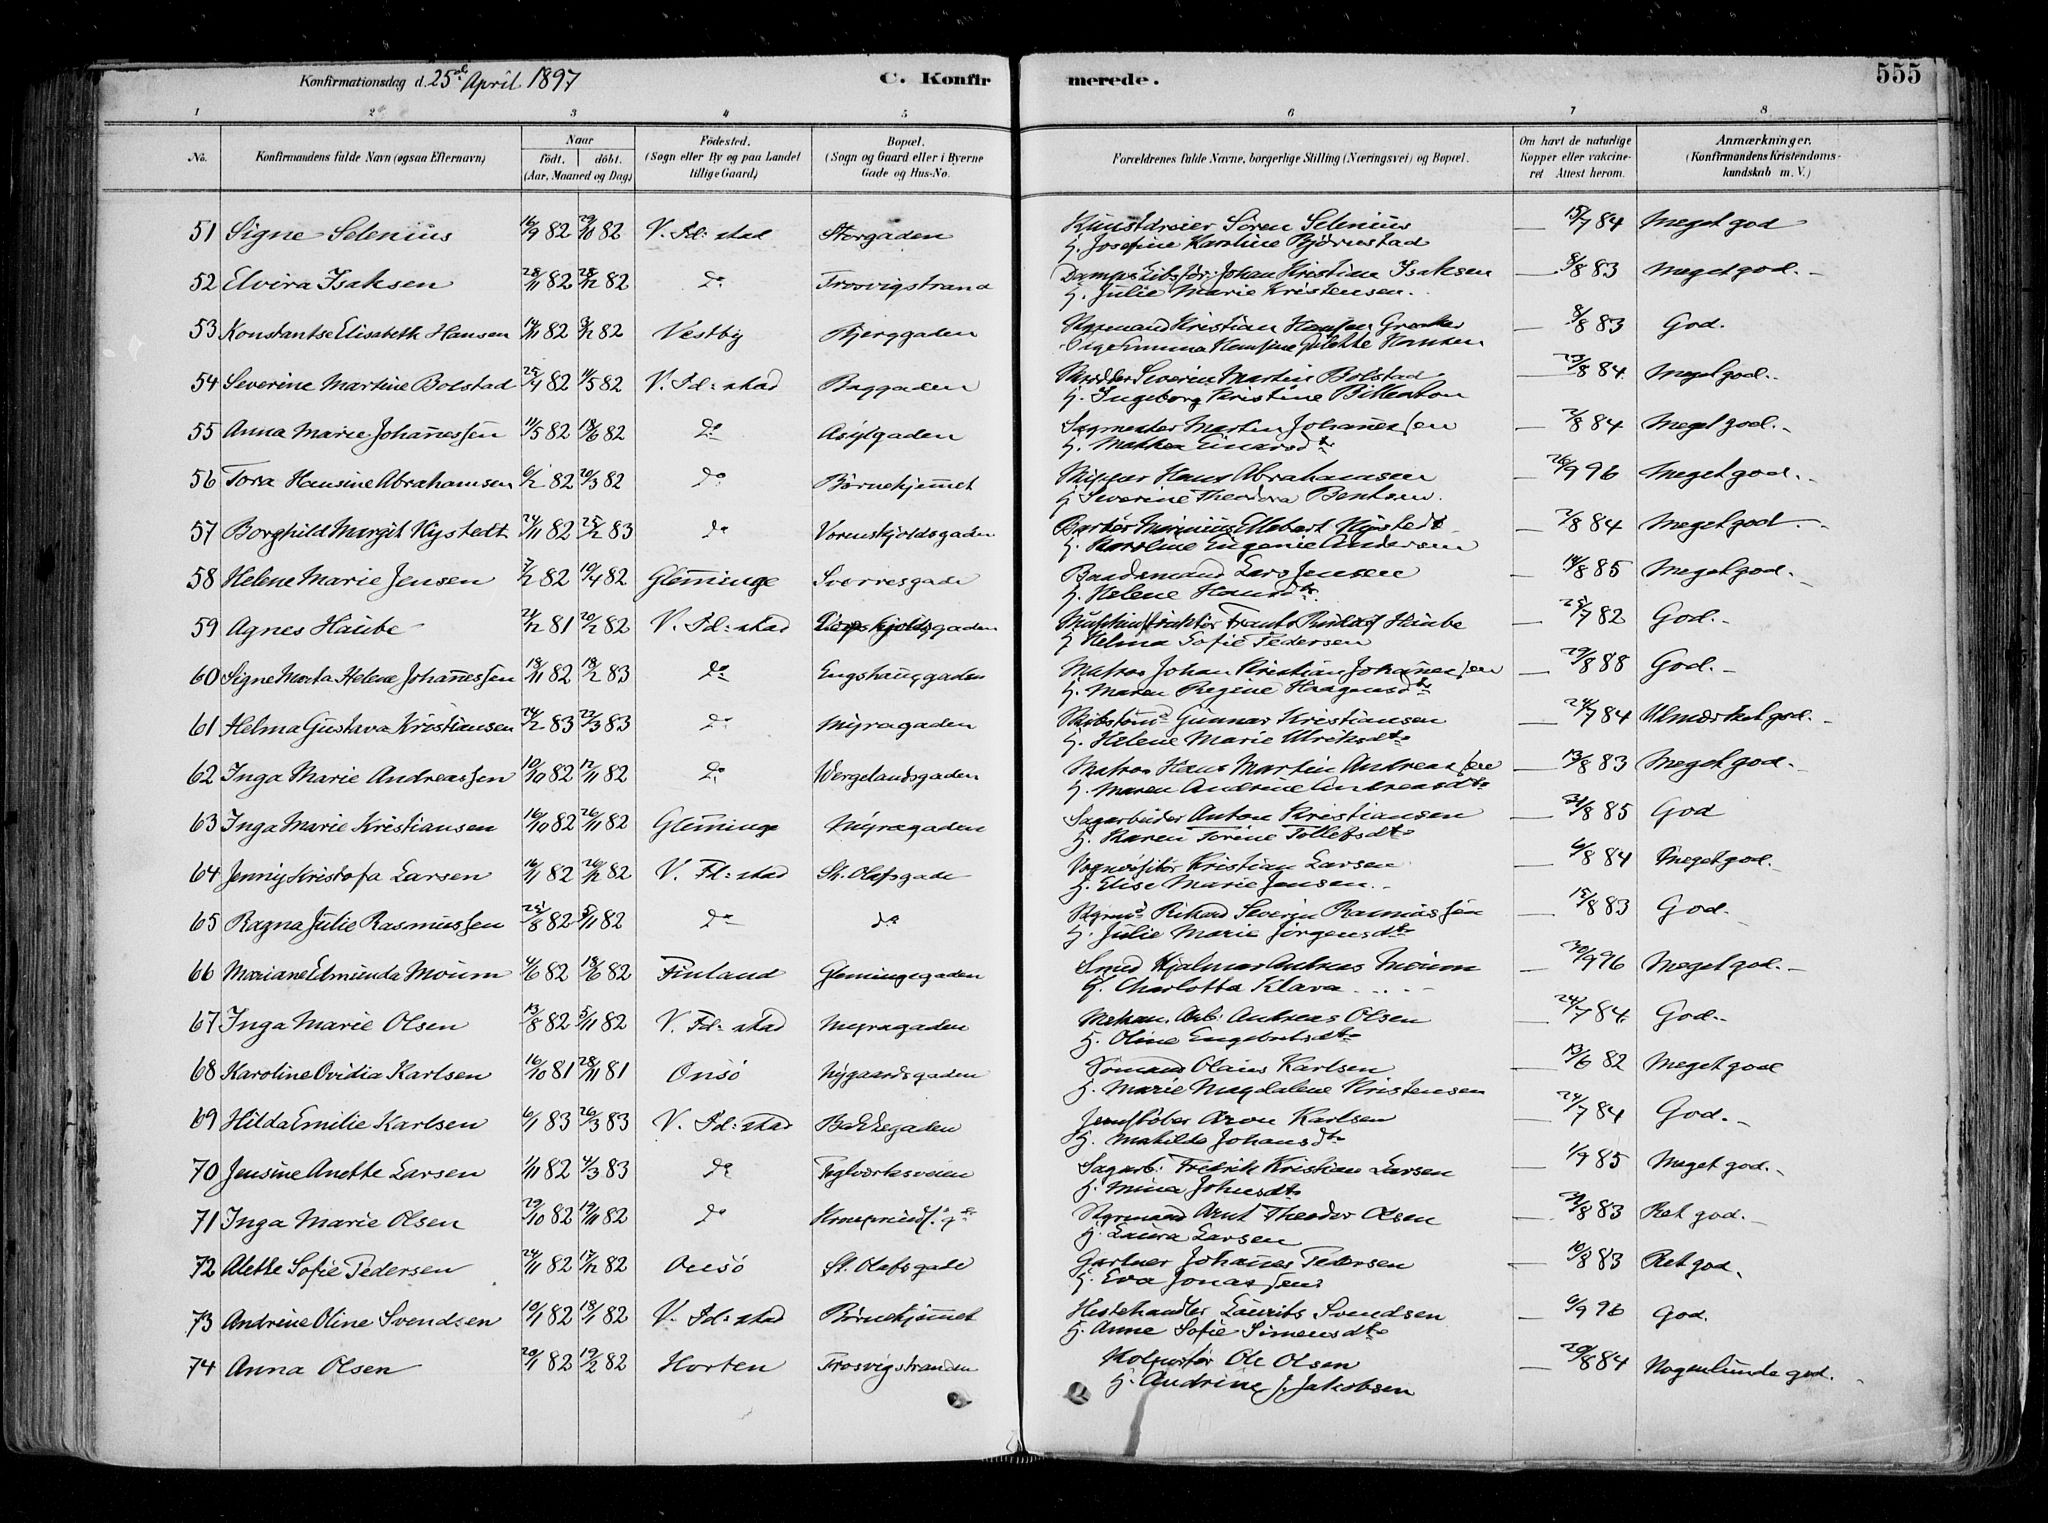 Konfirmationsdag d. 25de April 1897 C. Konfirmerede. 555
1 2 3 4 5 6 7 8
No. Konfirmandens fulde Navn (ogsaa Efternavn) Naar født. døbt. (Aar, Maaned og Dag) Fødested. (Sogn eller By og paa Landet tillige Gaard) Bopæl. (Sogn og Gaard eller i Byerne Gade og Hus-No. Forældrenes fulde Navne, borgerlige Stilling (Næringsvei) og Bopæl. Om havt de naturlige Kopper eller vakcineret Attest herom. Anmærkninger. (Konfirmandens Kristendomskundskab m. V.)
51 Signe Selenius 16/9 82 29/10 82 V. Fd:stad Storgaden Kunstdreier Søren Selenius — 15/7 84 Meget god
H. Josefine Karoline Bjørnstad
52 Elvira Isaksen 28/11 82 28/12 82 Do Trosvigstrand Johan Kristian Isaksen — 8/8 83 Meget god.
H. Julie Marie Kristensen.
53 Konstantse Elisabeth Hansen 14/10 82 3/12 82 Vestby Bjerggaden Styrmand Kristian Hansen — 8/8 83 God.
Pige Emma Hansen
54 Severine Martine Bolstad 25/4 82 11/5 82 V. Fd:stad Baggaden Severin Martin Bolstad — 23/8 84 Meget god.
H. Ingeborg Kristine
55 Anna Marie Johannessen 11/5 82 18/6 82 Do Asylgaden Sagmester Martin Johannessen — 2/8 84 Meget god.
H. Mathea Einarsdtr
56 Tora Hansine Abrahamsen 6/2 82 20/3 82 do Børnehjemmet Skipper Hans Abrahamsen — 26/9 96 Meget god.
H. Severine Theodora Bentsen.
57 Borghild Margit Nystedt 24/11 82 25/2 83 do Vorenskjoldsgaden Nystedt — 2/8 84 Meget god.
H. Karoline Eugenie Andersen
58 Helene Marie Jensen 7/2 82 10/4 82 Glemminge Sverresgade Baadsmand Lars Jensen — 14/8 85 Meget god.
H. Helene Hansdtr.
59 Agnes Haube 24/12 81 20/2 82 V. Fd:stad Frants Haube — 25/7 82 God.
H. Helma Sofie Pedersen
60 Signe Marta Helene Johannessen 18/11 82 18/2 83 do Engshauggaden Matros Johan Kristian Johannessen — 29/8 88 God.
H. Maren Regine Haagensdtr
61 Helma Gustava Kristiansen 24/2 83 22/3 83 do Myragaden Skibstømd Gunnar Kristiansen — 24/7 84 Udmærket god.
H. Helene Marie Ulriksdtr
62 Inga Marie Andreassen 10/10 82 12/11 82 Do Wergelandsgaden Matros Hans Martin Andreassen — 13/8 83 Meget god.
H. Maren Andrine Andreasdtr
63 Inga Marie Kristiansen 16/10 82 26/11 82 Glemminge Myragaden Sagarbeider Anton Kristiansen — 31/8 85 God
H. Karen Torine Tollefsdtr
64 Jenny Kristofa Larsen 16/1 82 26/12 82 V. Fd:stad St. Olafsgade Kristian Larsen — 6/8 84 Meget god.
H. Elise Marie Jensen.
65 Ragna Julie Rasmussen 25/8 82 5/11 82 do do Styrmd Rikard Severin Rasmussen — 15/8 83 God.
H. Julie Marie Jørgensdtr
66 Mariane Edmunda Moum 4/6 82 18/6 82 Finland Glemingegaden Smed Hjalmar Andreas Moum — 30/9 96 Meget god.
H. Charlotta Klara
67 Inga Marie Olsen 13/8 82 5/11 82 V. Fd:stad Myragaden Mekan. Arb. Andreas Olsen — 24/7 84. God.
H. Oline Engebretsdtr
68 Karoline Ovidia Karlsen 16/10 81 28/11 81 Onsø Nygaardsgaden Sømand Olaus Karlsen — 13/6 82 Meget god
H. Marie Magdalene Kristensen
69 Hilda Emilie Karlsen 6/1 83 26/3 83 V. Fd:stad Bakkegaden Jernstøber Aron Karlsen — 24/7 84 God.
H. Matilde Johansdtr
70 Jensine Anette Larsen 1/11 82 4/3 83 do Teglværksveien Sagarb. Fredrik Kristian Larsen — 1/9 85 Meget god.
H. Mina Johnsdtr
71 Inga Marie Olsen 29/10 82 19/11 82 do Styrmand Arnt Theodor Olsen — 31/8 83 Ret god.
H. Laura Larsen
72 Alette Sofie Pedersen 24/11 82 17/12 82 Onsø St. Olafsgade Gartner Johannes Pedersen — 10/8 83 Ret god.
H. Eva Jonassen
73 Andrine Oline Svendsen 10/1 82 18/1 82 V. Fd:stad Børnehjemmet Hestehandler Laurits Svendsen — 6/9 96 God.
H. Anne Sofie Simensdtr
74 Anna Olsen 20/1 82 19/2 82 Horten Trosvigstranden Ole Olsen — 20/8 84 Nogenlunde god.
H. Andrine J. Jakobsen